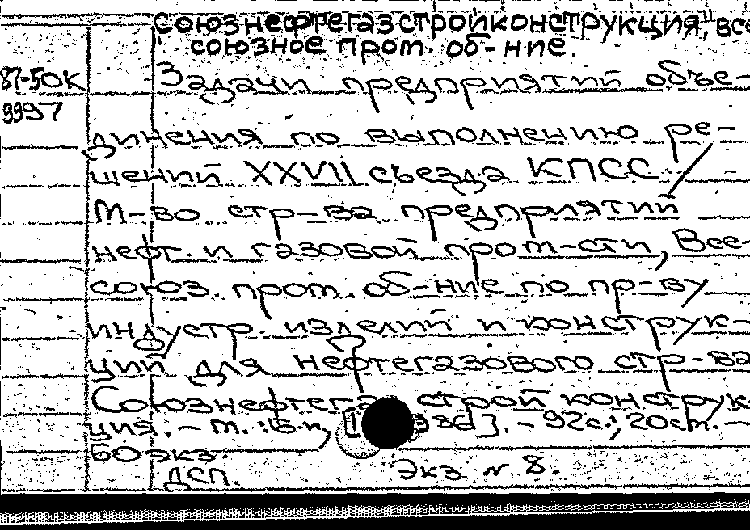 "Союзнефтегазстройконструкция," все
союзное пром. об-ние.
87-50К
9997
Задачи предприятий объе-
динения по выполнению ре-
шений XXVII съезда КПСС /
М-во стр-ва предприятий
нефт. и газовой пром-сти, Все-
союз. пром. об-ние по пр-ву
индустр. изделий и конструк-
ций для нефтегазового стр-ва
Союзнефтегаз стройконструк-
ция. - М.: Б.и., [1986]. - 92с.; 20см. -
60 экз.
ДСП.
Экз № 8.